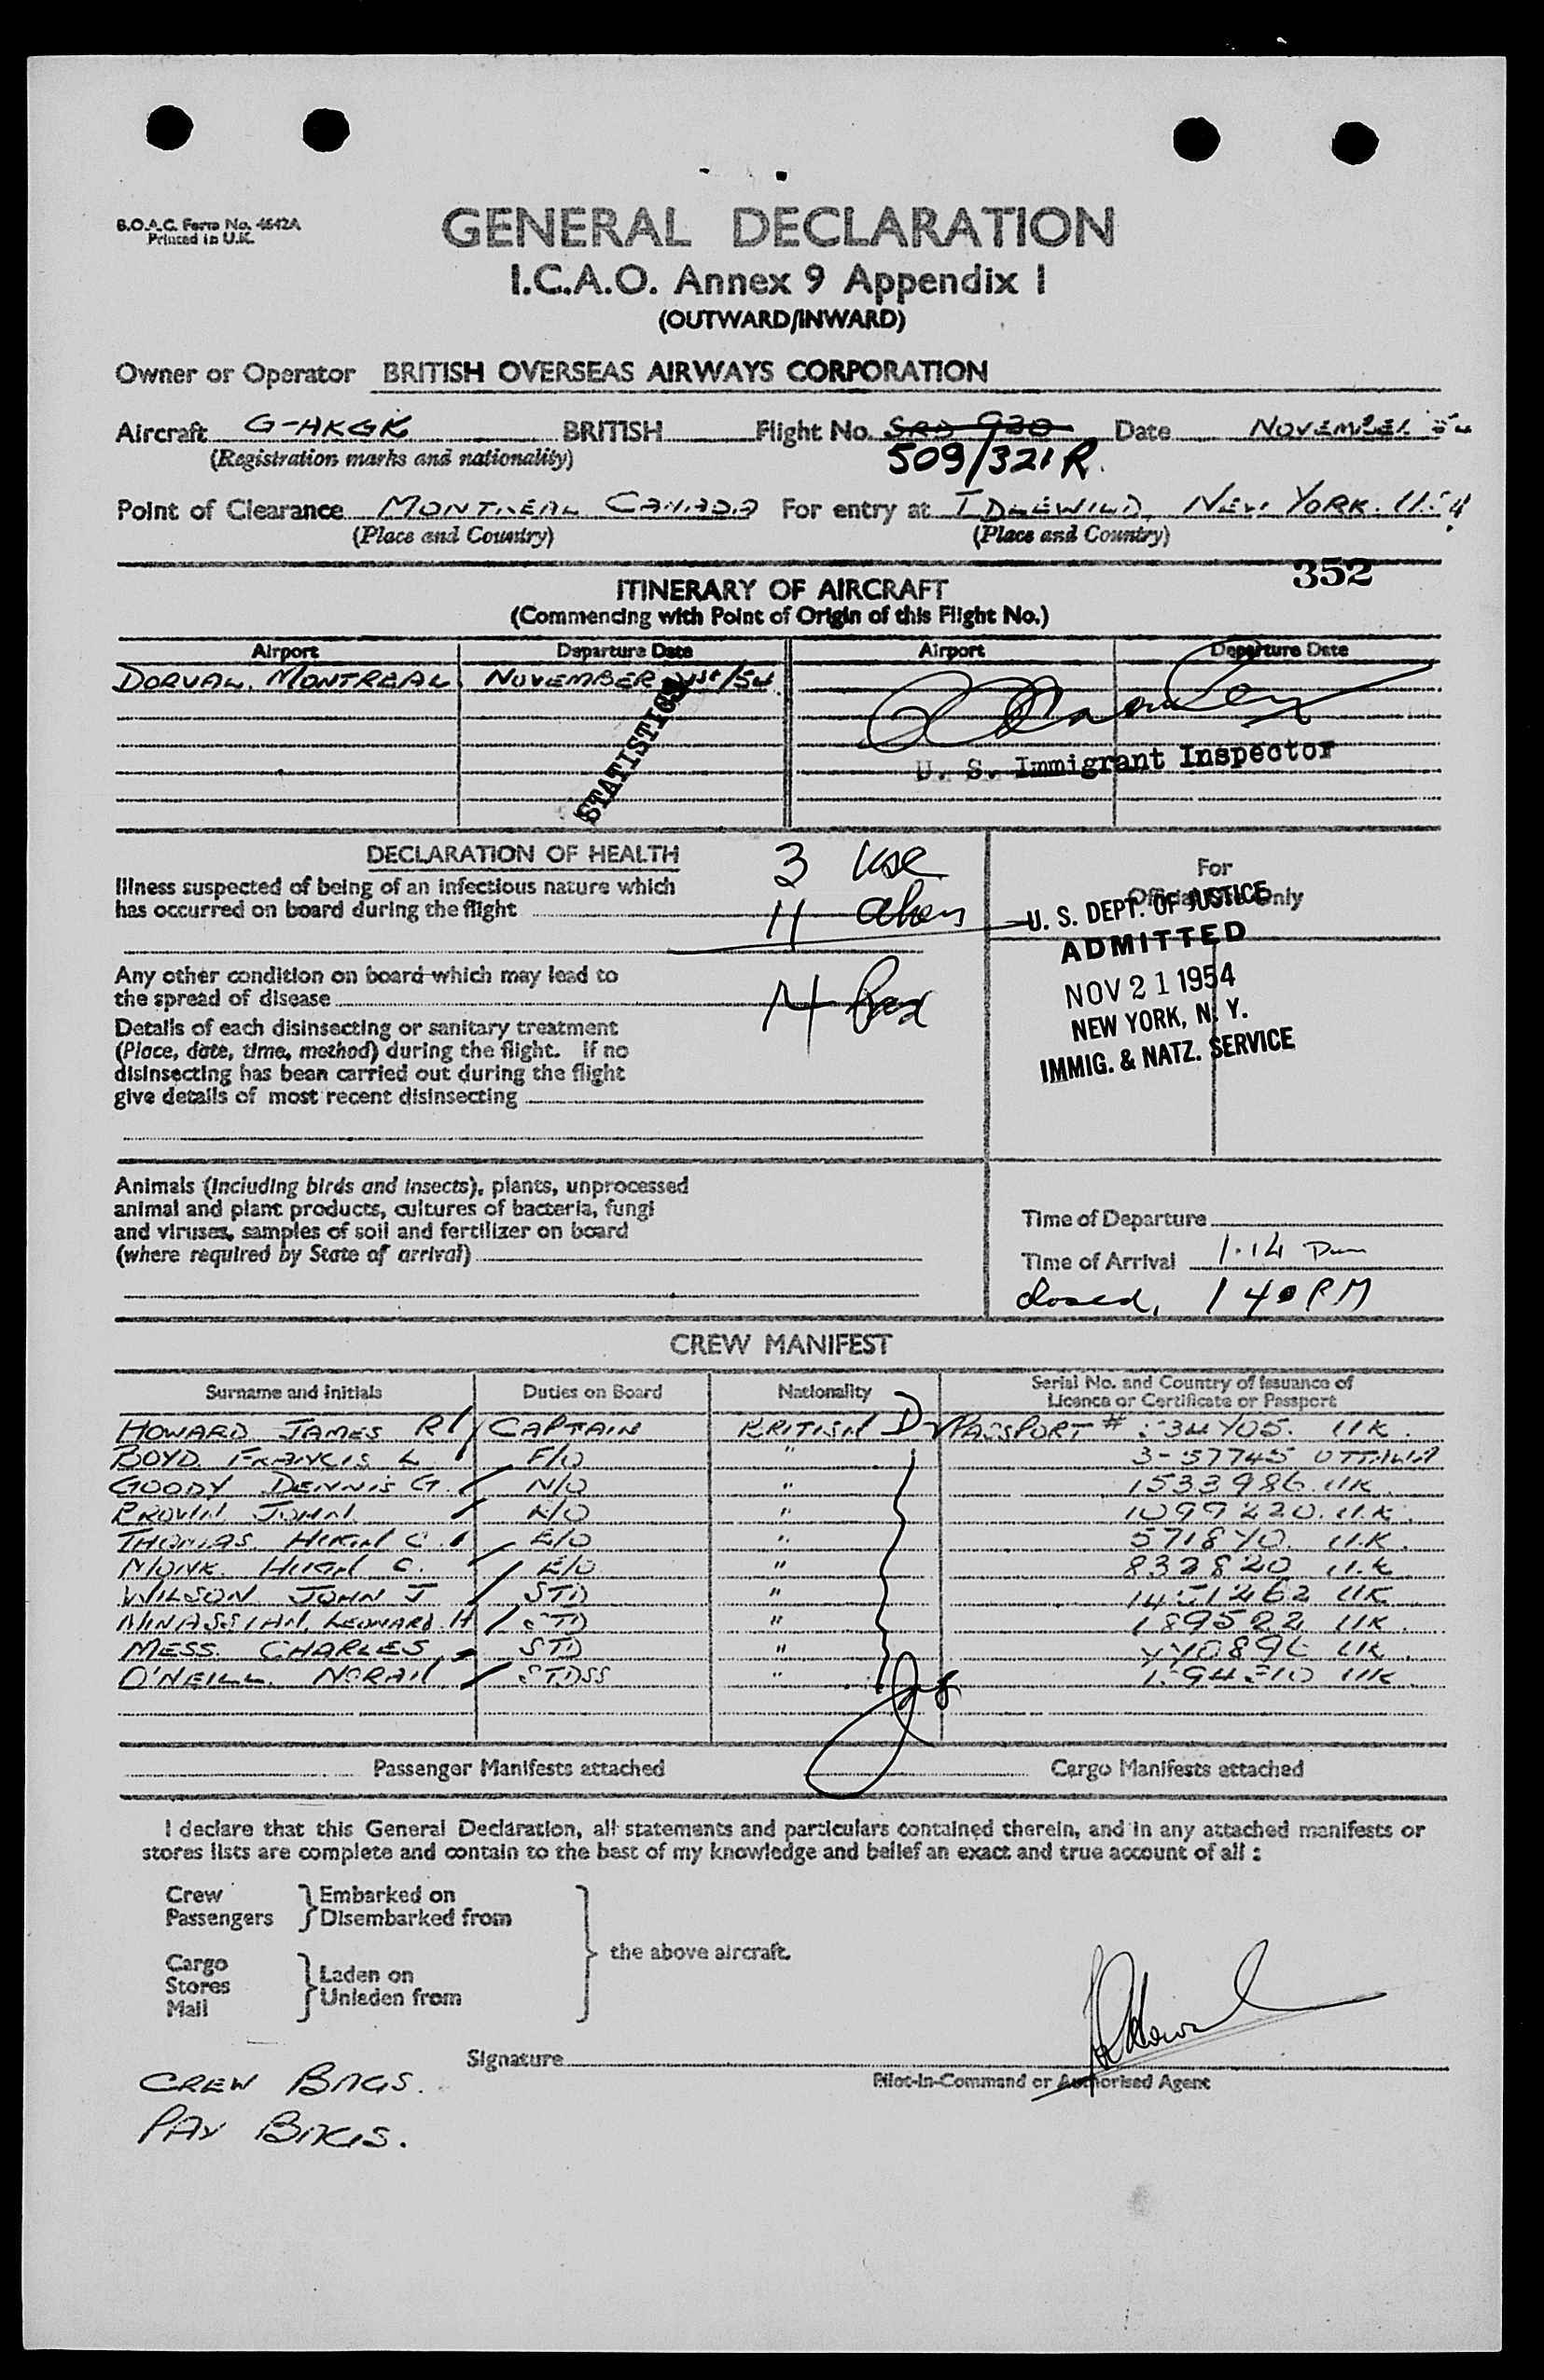 B.O.A.C. Form No. 4642A
Printed in U.K.
GENERAL DECLARATION
I.C.A.O. Annex 9 Appendix I
(OUTWARD/INWARD)
Owner or Operator BRITISH OVERSEAS AIRWAYS CORPORATION
Aircraft G-AKGK BRITISH Flight No. 930 Date NOVEMBER
(Registration marks and nationality) 509/321R.
Point of Clearance MONTREAL CANADA For entry at IDLEWILD, NEW YORK.
(Place and Country) (Place and Country)
352
ITINERARY OF AIRCRAFT
(Commencing with Point of Origin of this Flight No.)
Airport Departure Date Airport Departure Date
DORVAL. MONTREAL NOVEMBER 21st/54
STATISTICS
U. S. Immigrant Inspector
DECLARATION OF HEALTH
3 use
Illness suspected of being of an infectious nature which
has occurred on board during the flight
11 aliens
Any other condition on board which may lead to
the spread of disease
14 Pax
Details of each disinsecting or sanitary treatment
(Place, date, time, method) during the flight. If no
disinsecting has been carried out during the flight
give details of most recent disinsecting
For
Official Use Only
U. S. DEPT. OF JUSTICE
ADMITTED
NOV 21 1954
NEW YORK, N. Y.
IMMIG. & NATZ. SERVICE
Animals (including birds and insects), plants, unprocessed
animal and plant products, cultures of bacteria, fungi
and viruses, samples of soil and fertilizer on board
(where required by State of arrival)
Time of Departure
Time of Arrival 1.14 Pm
closed, 1 40 PM
CREW MANIFEST
Surname and initials Duties on Board Nationality Serial No. and Country of Issuance of
Licence or Certificate or Passport
HOWARD JAMES R CAPTAIN BRITISH PASSPORT # UK.
BOYD FRANCIS L F/O " 3-57745 OTTAWA
GOODY DENNIS G. N/O " 1533986 UK.
JOHN " 1099220. U.K.
THOMAS. C. E/O " U.K.
MONK HUGH C. E/O " 832820 U.K
WILSON JOHN J STD " UK
MINASSIAN, LEONARD. H STD " 189522 UK.
MESS. CHARLES STD " UK.
O'NEILL. NORAH STDSS " UK
Passenger Manifests attached Cargo Manifests attached
I declare that this General Declaration, all statements and particulars contained therein, and in any attached manifests or
stores lists are complete and contain to the best of my knowledge and belief an exact and true account of all :
Crew Embarked on
Passengers Disembarked from
the above aircraft.
Cargo
Stores Laden on
Mail Unladen from
Signature
Pilot-in-Command or Authorised Agent
CREW BAGS.
PAX BAGS.